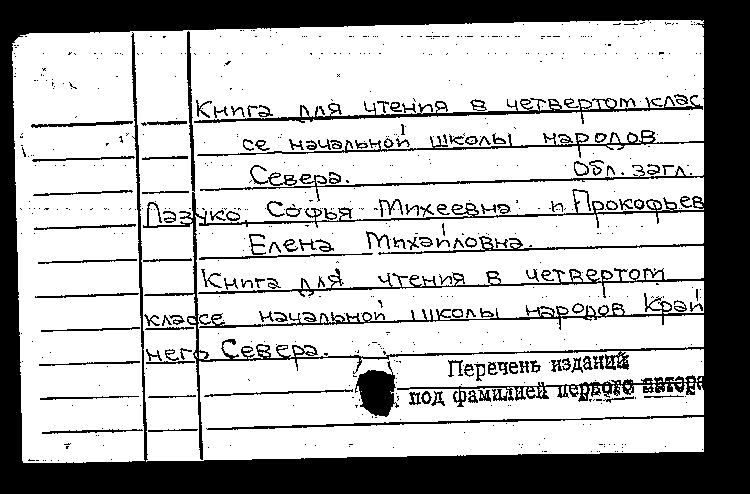 Книга для чтения в четвертом клас
се начальной школы народов
Севера. Обл. загл.
Лазуко, Софья Михеевна и Прокофьев
Елена Михайловна.
Книга для чтения в четвертом
классе начальной школы народов Край
него Севера.
Перечень изданий
под фамилией первого автора